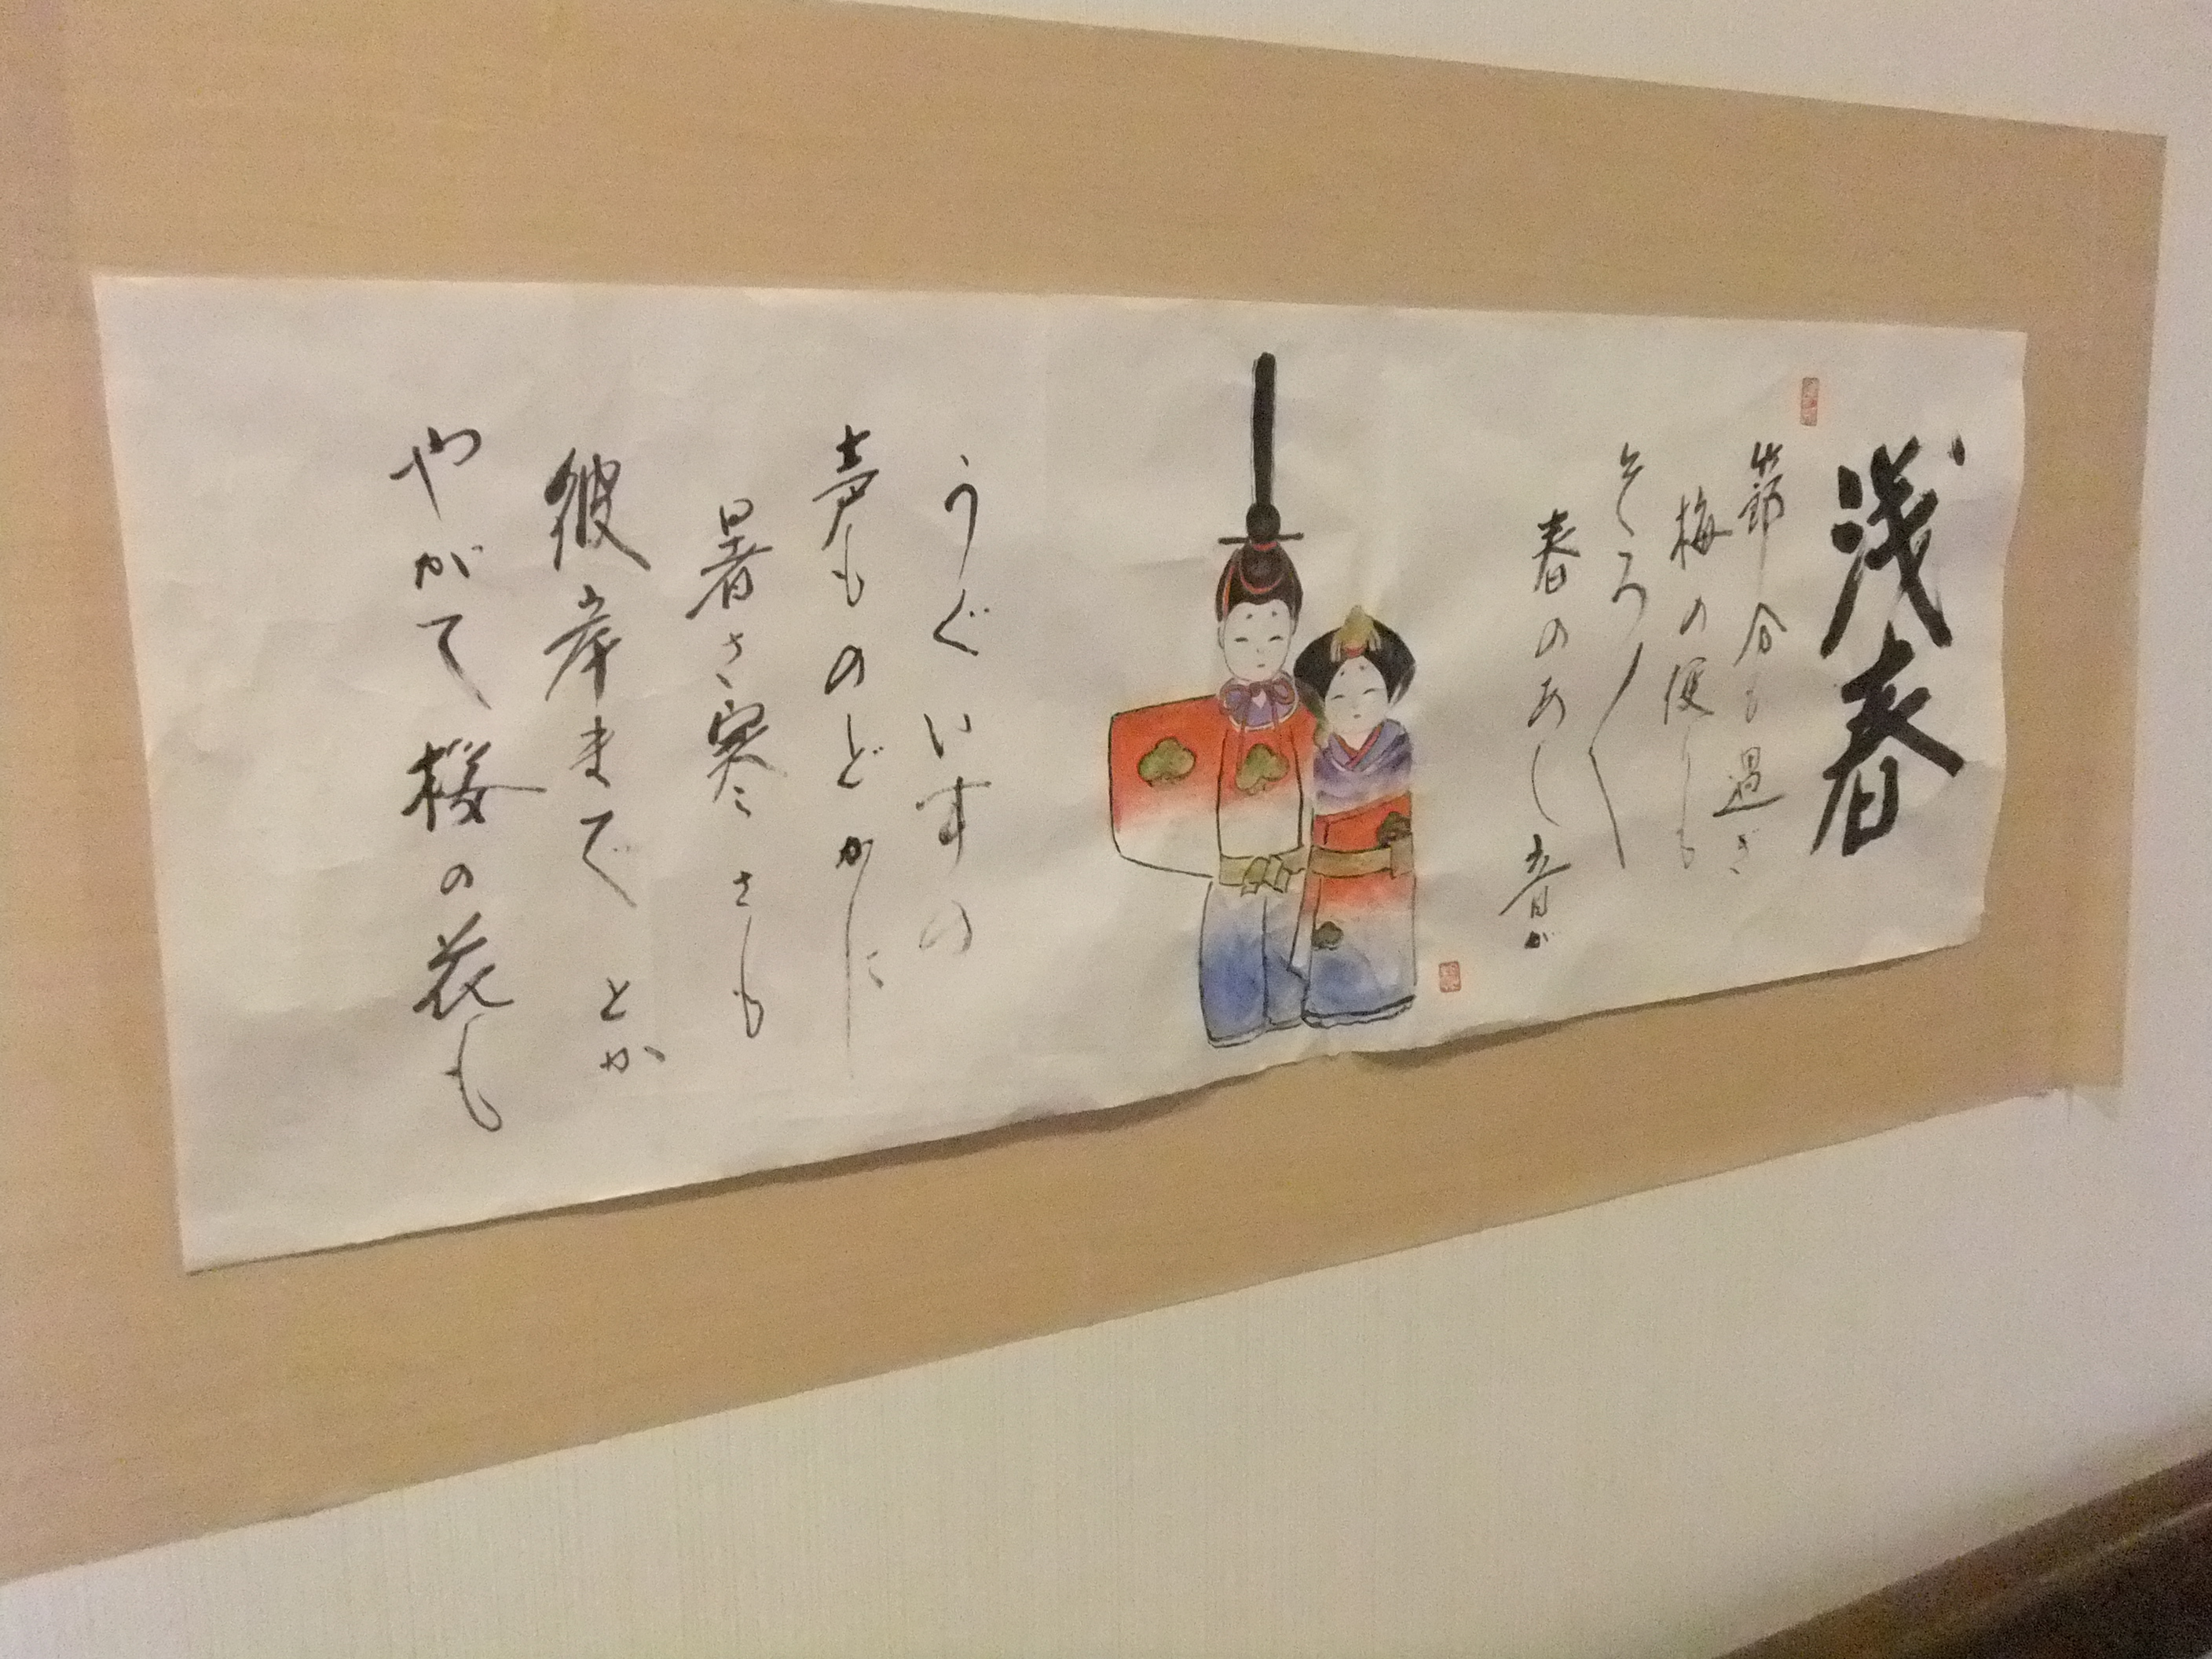 浅春
節分も過ぎ
梅の便りも
そろ〳〵
春のあし音が
うぐいすの
声ものどかに
暑さ寒さも
彼岸までとか
やがて桜の花も